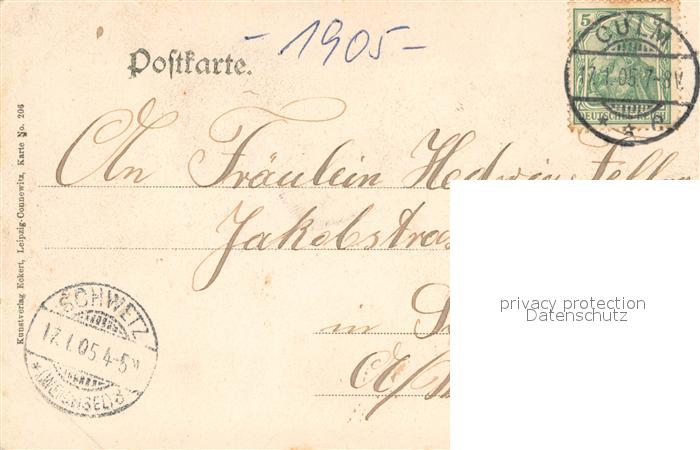 - 1905 -
Postkarte.
5
CULM
17.1.05.7-8V.
* a *
DEUTSCHES REICH
An Fräulein Hedwig
Jakobstras
in
a/W
privacy protection
Datenschutz
SCHWETZ
17.1.05.4-5N
*(WEICHSEL)a
Kunstverlag Eckert, Leipzig-Connewitz, Karte No. 206